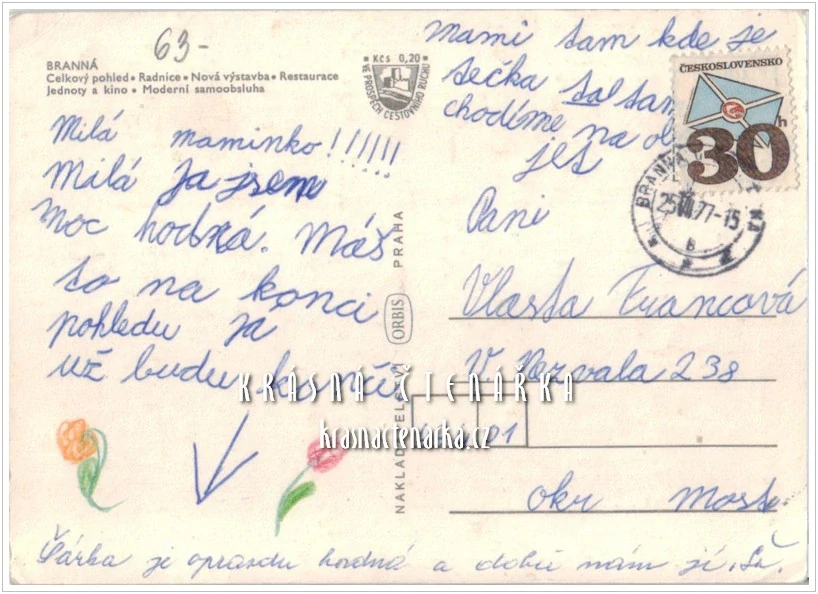 63-
BRANNÁ
Celkový pohled • Radnice • Nová výstavba • Restaurace
Jednoty a kino • Moderní samoobsluha
• Kčs 0,20 •
VE PROSPĚCH CESTOVNÍHO RUCHU
Milá maminko!!!!!!
Milá Ja jsem
moc hodná. Máš
to na konci
pohledu ja
už budu končit
Šárka je opravdu hodná a dobře nám jí.
mami tam kde je
tečka tal tam
chodíme na
jet
ČESKOSLOVENSKO
30h
BRANNÁ
25.VII.77-15
b
Paní
Vlasta Francová
V. 238
01
okr Most
NAKLADATELSTVÍ ORBIS PRAHA
KRÁSNÁ ČTENÁŘKA
krasnactenarka.cz